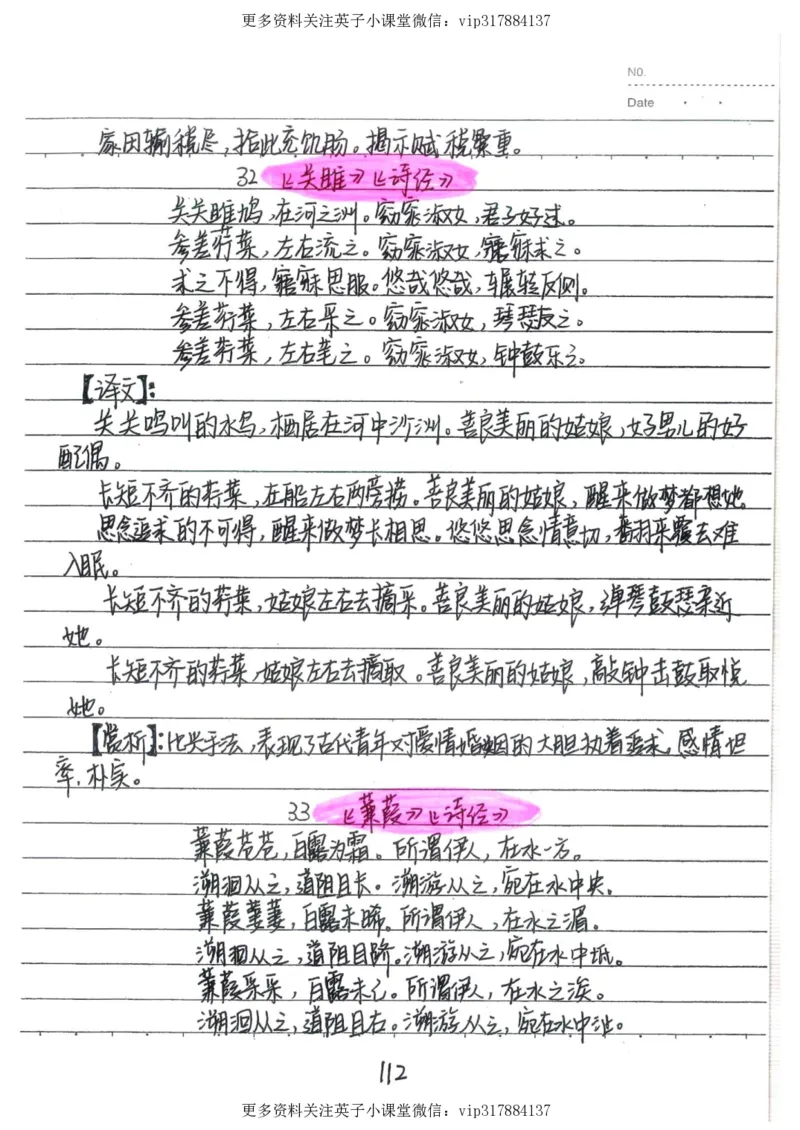 更多资料关注英子小课堂微信：vip317884137
NO.
Date
家田输税尽，拾此充饥肠。揭示赋税繁重。
32 《关雎》《诗经》
关关雎鸠，在河之洲。窈窕淑女，君子好逑。
参差荇菜，左右流之。窈窕淑女，寤寐求之。
求之不得，寤寐思服。悠哉悠哉，辗转反侧。
参差荇菜，左右采之。窈窕淑女，琴瑟友之。
参差荇菜，左右芼之。窈窕淑女，钟鼓乐之。
【译文】：
关关鸣叫的水鸟，栖居在河中沙洲。善良美丽的姑娘，好男儿的好
配偶。
长短不齐的荇菜，在船左右两旁捞。善良美丽的姑娘，醒来做梦都想她。
思念追求的不可得，醒来做梦长相思。悠悠思念情意切，翻来覆去难
入眠。
长短不齐的荇菜，姑娘左右去摘采。善良美丽的姑娘，弹琴鼓瑟亲近
她。
长短不齐的荇菜，姑娘左右去摘取。善良美丽的姑娘，敲钟击鼓取悦
她。
【赏析】：比兴手法，表现了古代青年对爱情婚姻的大胆执着追求。感情坦
率，朴实。
33 《蒹葭》《诗经》
蒹葭苍苍，白露为霜。所谓伊人，在水一方。
溯洄从之，道阻且长。溯游从之，宛在水中央。
蒹葭萋萋，白露未晞。所谓伊人，在水之湄。
溯洄从之，道阻且跻。溯游从之，宛在水中坻。
蒹葭采采，白露未已。所谓伊人，在水之涘。
溯洄从之，道阻且右。溯游从之，宛在水中沚。
112
更多资料关注英子小课堂微信：vip317884137